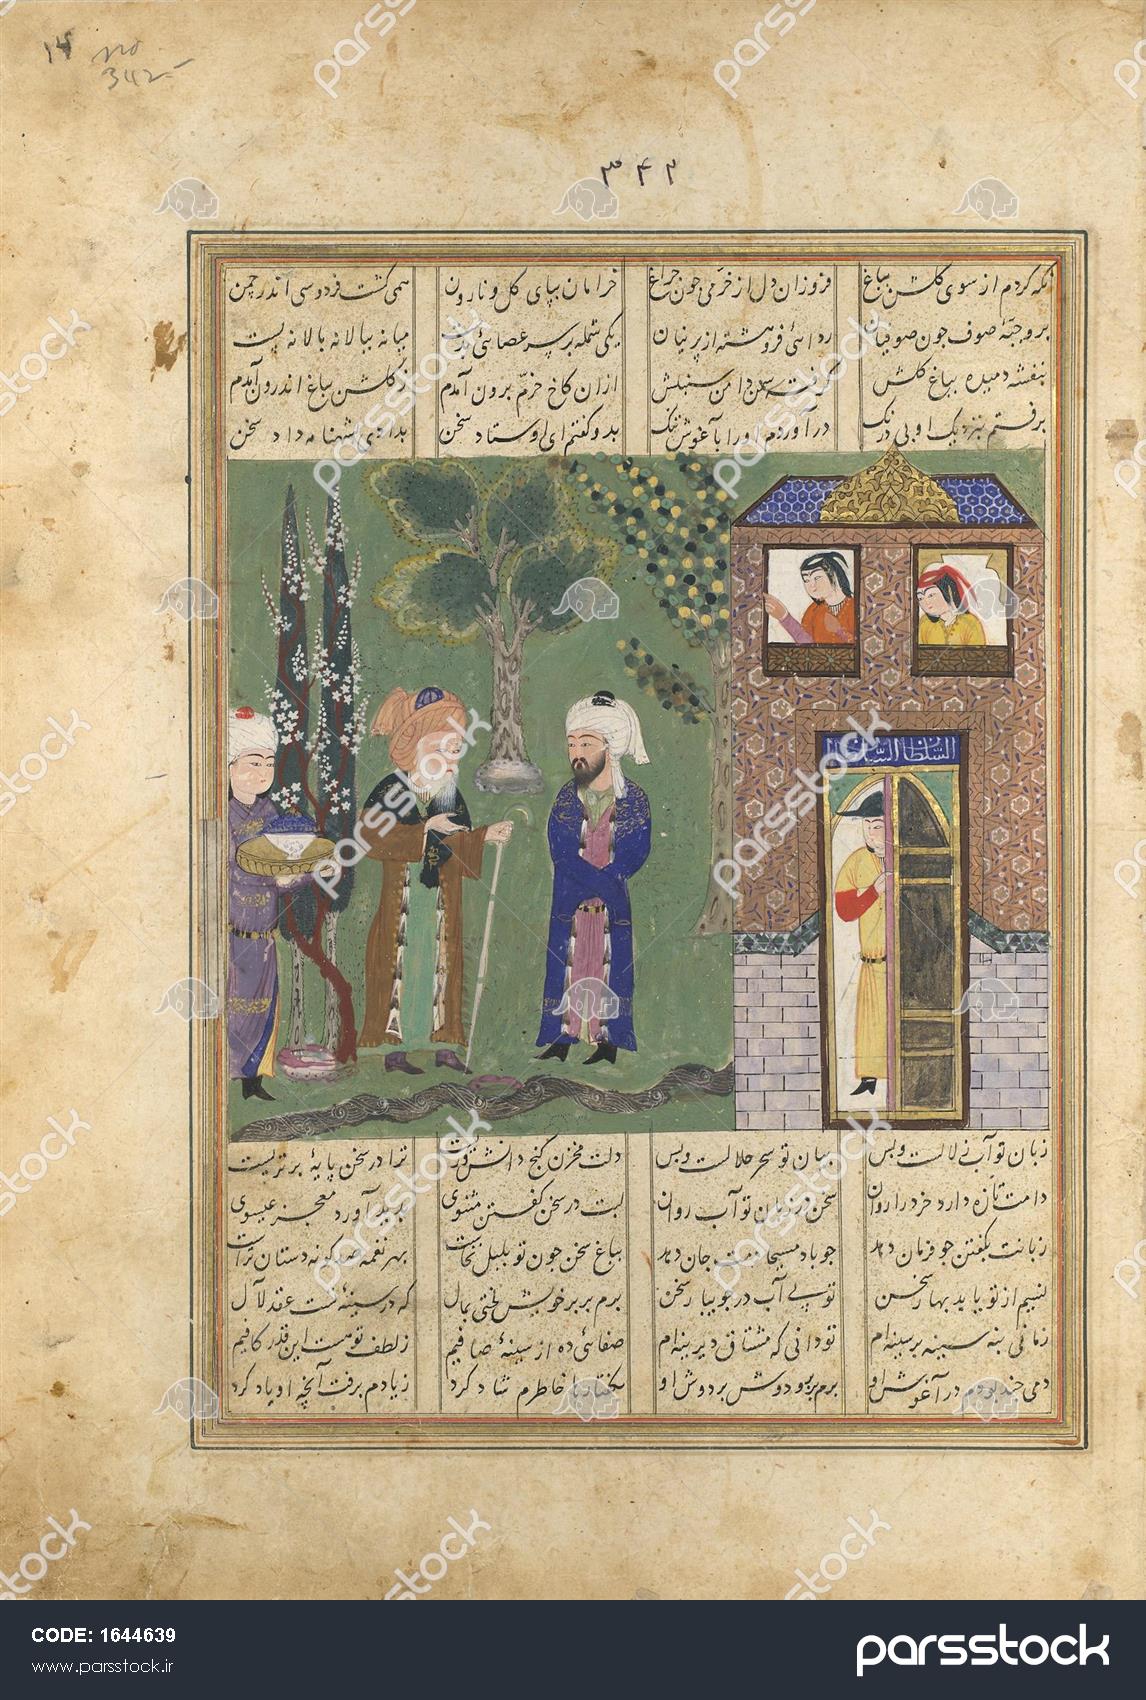 ۱۴
no
342
۳۴۲
نگه کردم از سوی گلشن بباغ
فروزان دل از خرمی چون چراغ
خرامان بپای گل و نارون
همی گشت فردوسی اندر چمن
برو جبّهٔ صوف چون صوفیان
ردائی فروهشته از پرنیان
یکی شمله بر سر عصائی بدست
میانه ببالا نه بالا نه پست
بنفشه دمیده بباغ گلش
گرفته سمن دامن سنبلش
ازان کاخ خرّم برون آمدم
ز گلشن بباغ اندرون آمدم
برفتم بنزدیک او بی درنک
در آوردم او را بآغوش تنک
بدو گفتم ای اوستاد سخن
بدادی بشهنامه داد سخن
السّلطان السّلطان
زبان تو آب زلالست و بس
بیان تو سحر حلالست و بس
دلت مخزن گنج دانشورست
ترا در سخن پایهٔ برترست
دمت تازه دارد خرد را روان
سخن در زبان تو آب روان
لبت در سخن گفتن مثنوی
پدید آورد معجز عیسوی
زبانت بگفتن چو فرمان دهد
چو باد مسیحا دمت جان دهد
بباغ سخن چون تو بلبل نخاست
بهر نغمه صد گونه دستان تراست
نسیم از تو یابد بهار سخن
توئی آب در جویبار سخن
برم بر بر خویش لختی بمال
که در سینهٔ تست عقد لآل
زمانی بنه سینه بر سینه ام
تو دانی که مشتاق دیرینه ام
صفائی ده از سینهٔ صافیم
ز لطف تو هست این قدر کافیم
دمی چند بودم در آغوش او
برم بر بر و دوش بر دوش او
بگفتارها خاطرم شاد کرد
ز یادم برفت آنچه او یاد کرد
CODE: 1644639
www.parsstock.ir
parsstock